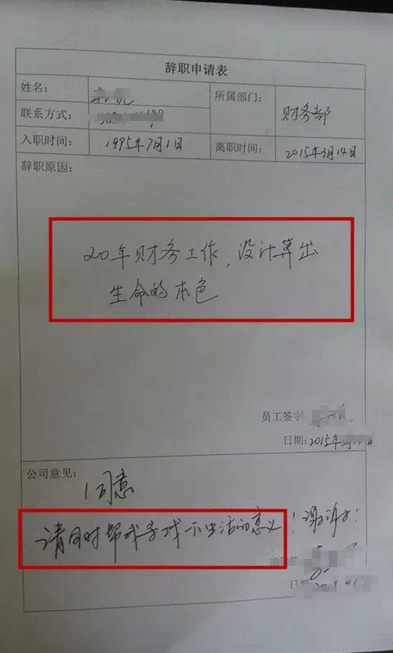 辞职申请表
姓名： 所属部门： 财务部
联系方式：
入职时间： 1995年7月1日 离职时间： 2015年3月14日
辞职原因：
20年财务工作，没计算出
生命的本色
员工签字
日期：2015年
公司意见：
同意
请同时帮我寻找一下生活的意义！谢谢！
日期